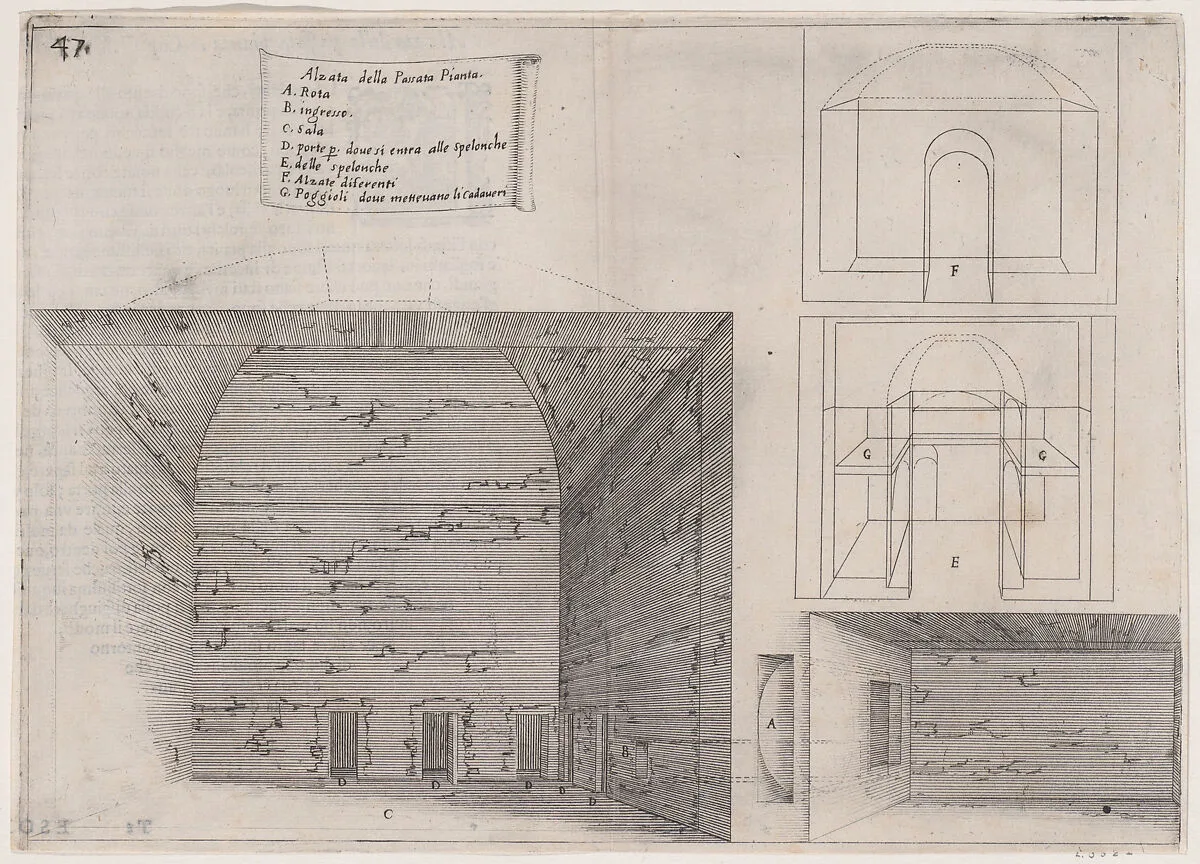 47.
Alzata della Passata Pianta.
A. Rota
B. ingresso.
C. Sala
D. porte p. doue si entra alle Spelonche
E. delle spelonche
F. Alzate diferenti
G. Poggioli doue metteuano li Cadaueri
F
G G
E
A
B
D D D D D
C